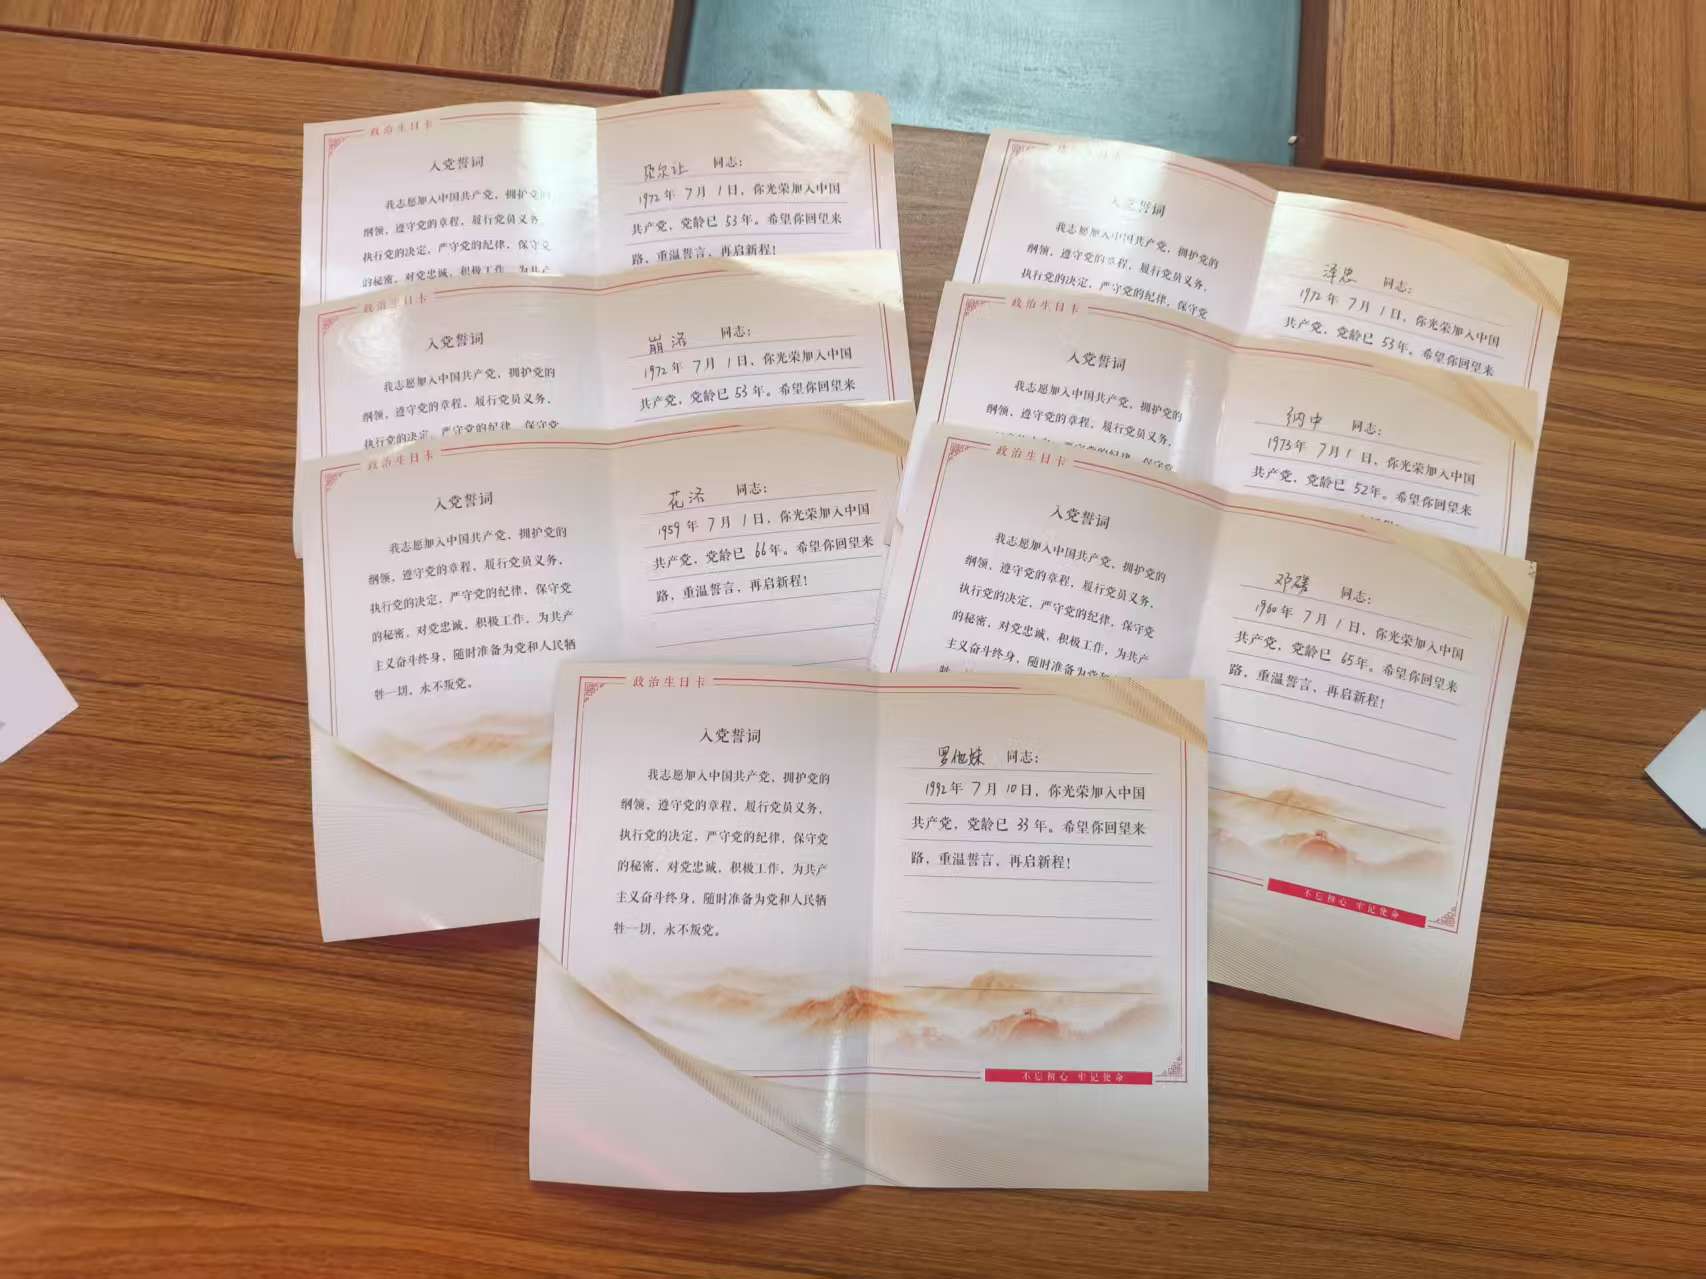 政治生日卡
入党誓词
我志愿加入中国共产党，拥护党的
纲领，遵守党的章程，履行党员义务，
执行党的决定，严守党的纪律，保守党
的秘密，对党忠诚，积极工作，为共产
尕尔让 同志：
1972年 7月 1日，你光荣加入中国
共产党，党龄已 53年。希望你回望来
路，重温誓言，再启新程！
政治生日卡
入党誓词
我志愿加入中国共产党，拥护党的
纲领，遵守党的章程，履行党员义务，
执行党的决定，严守党的纪律，保守党
崩洛 同志：
1972年 7月 1日，你光荣加入中国
共产党，党龄已 53年。希望你回望来
政治生日卡
入党誓词
我志愿加入中国共产党，拥护党的
纲领，遵守党的章程，履行党员义务，
执行党的决定，严守党的纪律，保守党
的秘密，对党忠诚，积极工作，为共产
主义奋斗终身，随时准备为党和人民牺
牲一切，永不叛党。
花洛 同志：
1959年 7月 1日，你光荣加入中国
共产党，党龄已 66年。希望你回望来
路，重温誓言，再启新程！
政治生日卡
入党誓词
我志愿加入中国共产党，拥护党的
纲领，遵守党的章程，履行党员义务，
执行党的决定，严守党的纪律，保守党
泽忠 同志：
1972年 7月 1日，你光荣加入中国
共产党，党龄已 53年。希望你回望来
政治生日卡
入党誓词
我志愿加入中国共产党，拥护党的
纲领，遵守党的章程，履行党员义务，
执行党的决定，严守党的纪律，保守党
纳中 同志：
1973年 7月 1日，你光荣加入中国
共产党，党龄已 52年。希望你回望来
政治生日卡
入党誓词
我志愿加入中国共产党，拥护党的
纲领，遵守党的章程，履行党员义务，
执行党的决定，严守党的纪律，保守党
的秘密，对党忠诚，积极工作，为共产
主义奋斗终身，随时准备为党和人民牺
邓 同志：
1960年 7月 1日，你光荣加入中国
共产党，党龄已 65年。希望你回望来
路，重温誓言，再启新程！
不忘初心 牢记使命
政治生日卡
入党誓词
我志愿加入中国共产党，拥护党的
纲领，遵守党的章程，履行党员义务，
执行党的决定，严守党的纪律，保守党
的秘密，对党忠诚，积极工作，为共产
主义奋斗终身，随时准备为党和人民牺
牲一切，永不叛党。
罗他妹 同志：
1992年 7月 10日，你光荣加入中国
共产党，党龄已 33年。希望你回望来
路，重温誓言，再启新程！
不忘初心 牢记使命